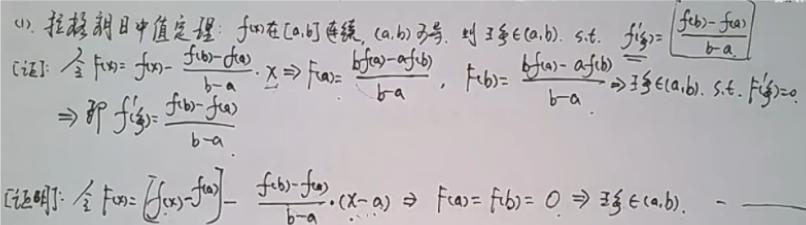 (1). 拉格朗日中值定理: f(x)在[a,b]连续, (a,b)可导. 则∃ξ∈(a,b). s.t. f'(ξ)=\frac{f(b)-f(a)}{b-a}
[证]: 令 F(x)=f(x)-\frac{f(b)-f(a)}{b-a}·x ⇒ F(a)=\frac{bf(a)-af(b)}{b-a}, F(b)=\frac{bf(a)-af(b)}{b-a} ⇒∃ξ∈(a,b). s.t. F'(ξ)=0.
⇒ 即 f'(ξ)=\frac{f(b)-f(a)}{b-a}.
[证明]: 令 F(x)=[f(x)-f(a)]-\frac{f(b)-f(a)}{b-a}·(x-a) ⇒ F(a)=F(b)=0 ⇒ ∃ξ∈(a,b). - —